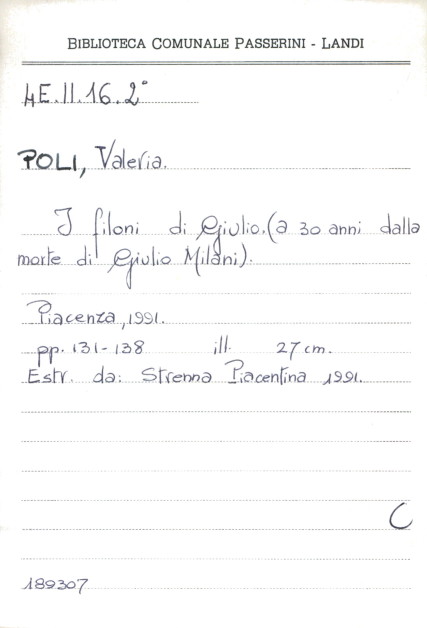 BIBLIOTECA COMUNALE PASSERINI - LANDI
4E.II.16.2°
POLI, Valeria.
I filoni di Giulio.(a 30 anni dalla
morte di Giulio Milani).
Piacenza, 1991.
pp. 131-138 ill. 27 cm.
Estr. da: Strenna Piacentina 1991.
C
189307